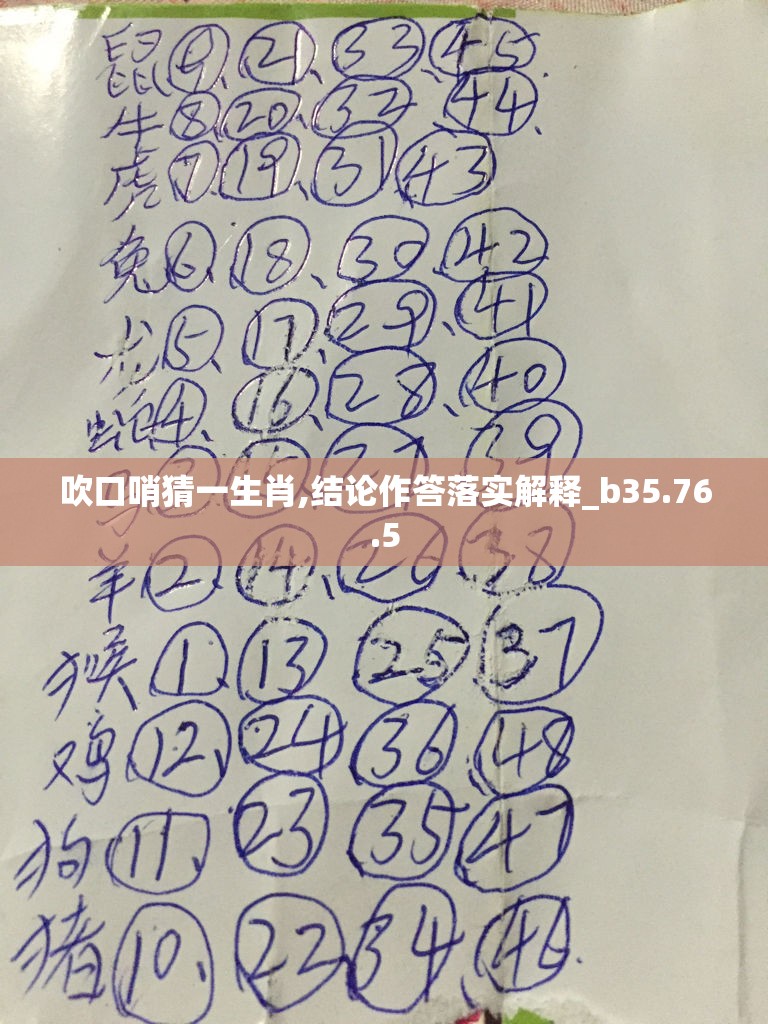 鼠⑨、㉑、㉝、㊺.
牛⑧、⑳、㉜、㊹、
虎⑦、⑲、㉛、㊸
兔⑥、⑱、㉚、㊷
龙⑤、⑰、㉙、㊶
蛇④、⑯、㉘、㊵
㊴
吹口哨猜一生肖,结论作答落实解释_b35.76
.5
羊②、⑭、㉖、㊳
猴①、⑬、㉕、㊲
鸡⑫、㉔、㊱、㊽
狗⑪、㉓、㉟、㊼
猪⑩、㉒、㉞、㊻.